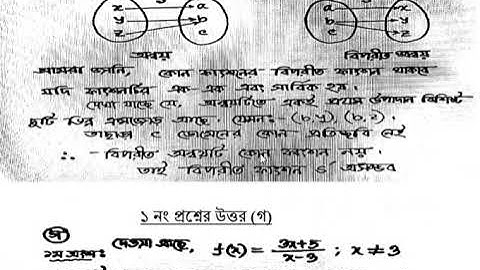 x a x
y b y
z c z
অন্বয় বিপরীত অন্বয়
আমরা জানি, কোন ফাংশনের বিপরীত ফাংশন থাকবে
যদি ফাংশনটির এক-এক এবং সার্বিক হয়।
দেখা যাচ্ছে যে, অন্বয়টিতে একই প্রথম উপাদান বিশিষ্ট
দুটি ভিন্ন ক্রমজোড় আছে। যেমন:- (b, y), (b, z).
তাছাড়া c ডোমেনের কোন প্রতিচ্ছবি নেই
∴ - বিপরীত অন্বয়টি কোন ফাংশন নয়।
তাই বিপরীত ফাংশন ও অসম্ভব
১ নং প্রশ্নের উত্তর (গ)
(গ)
১ম অংশ: দেওয়া আছে, f(x) = 3x+5 / x-3 ; x ≠ 3